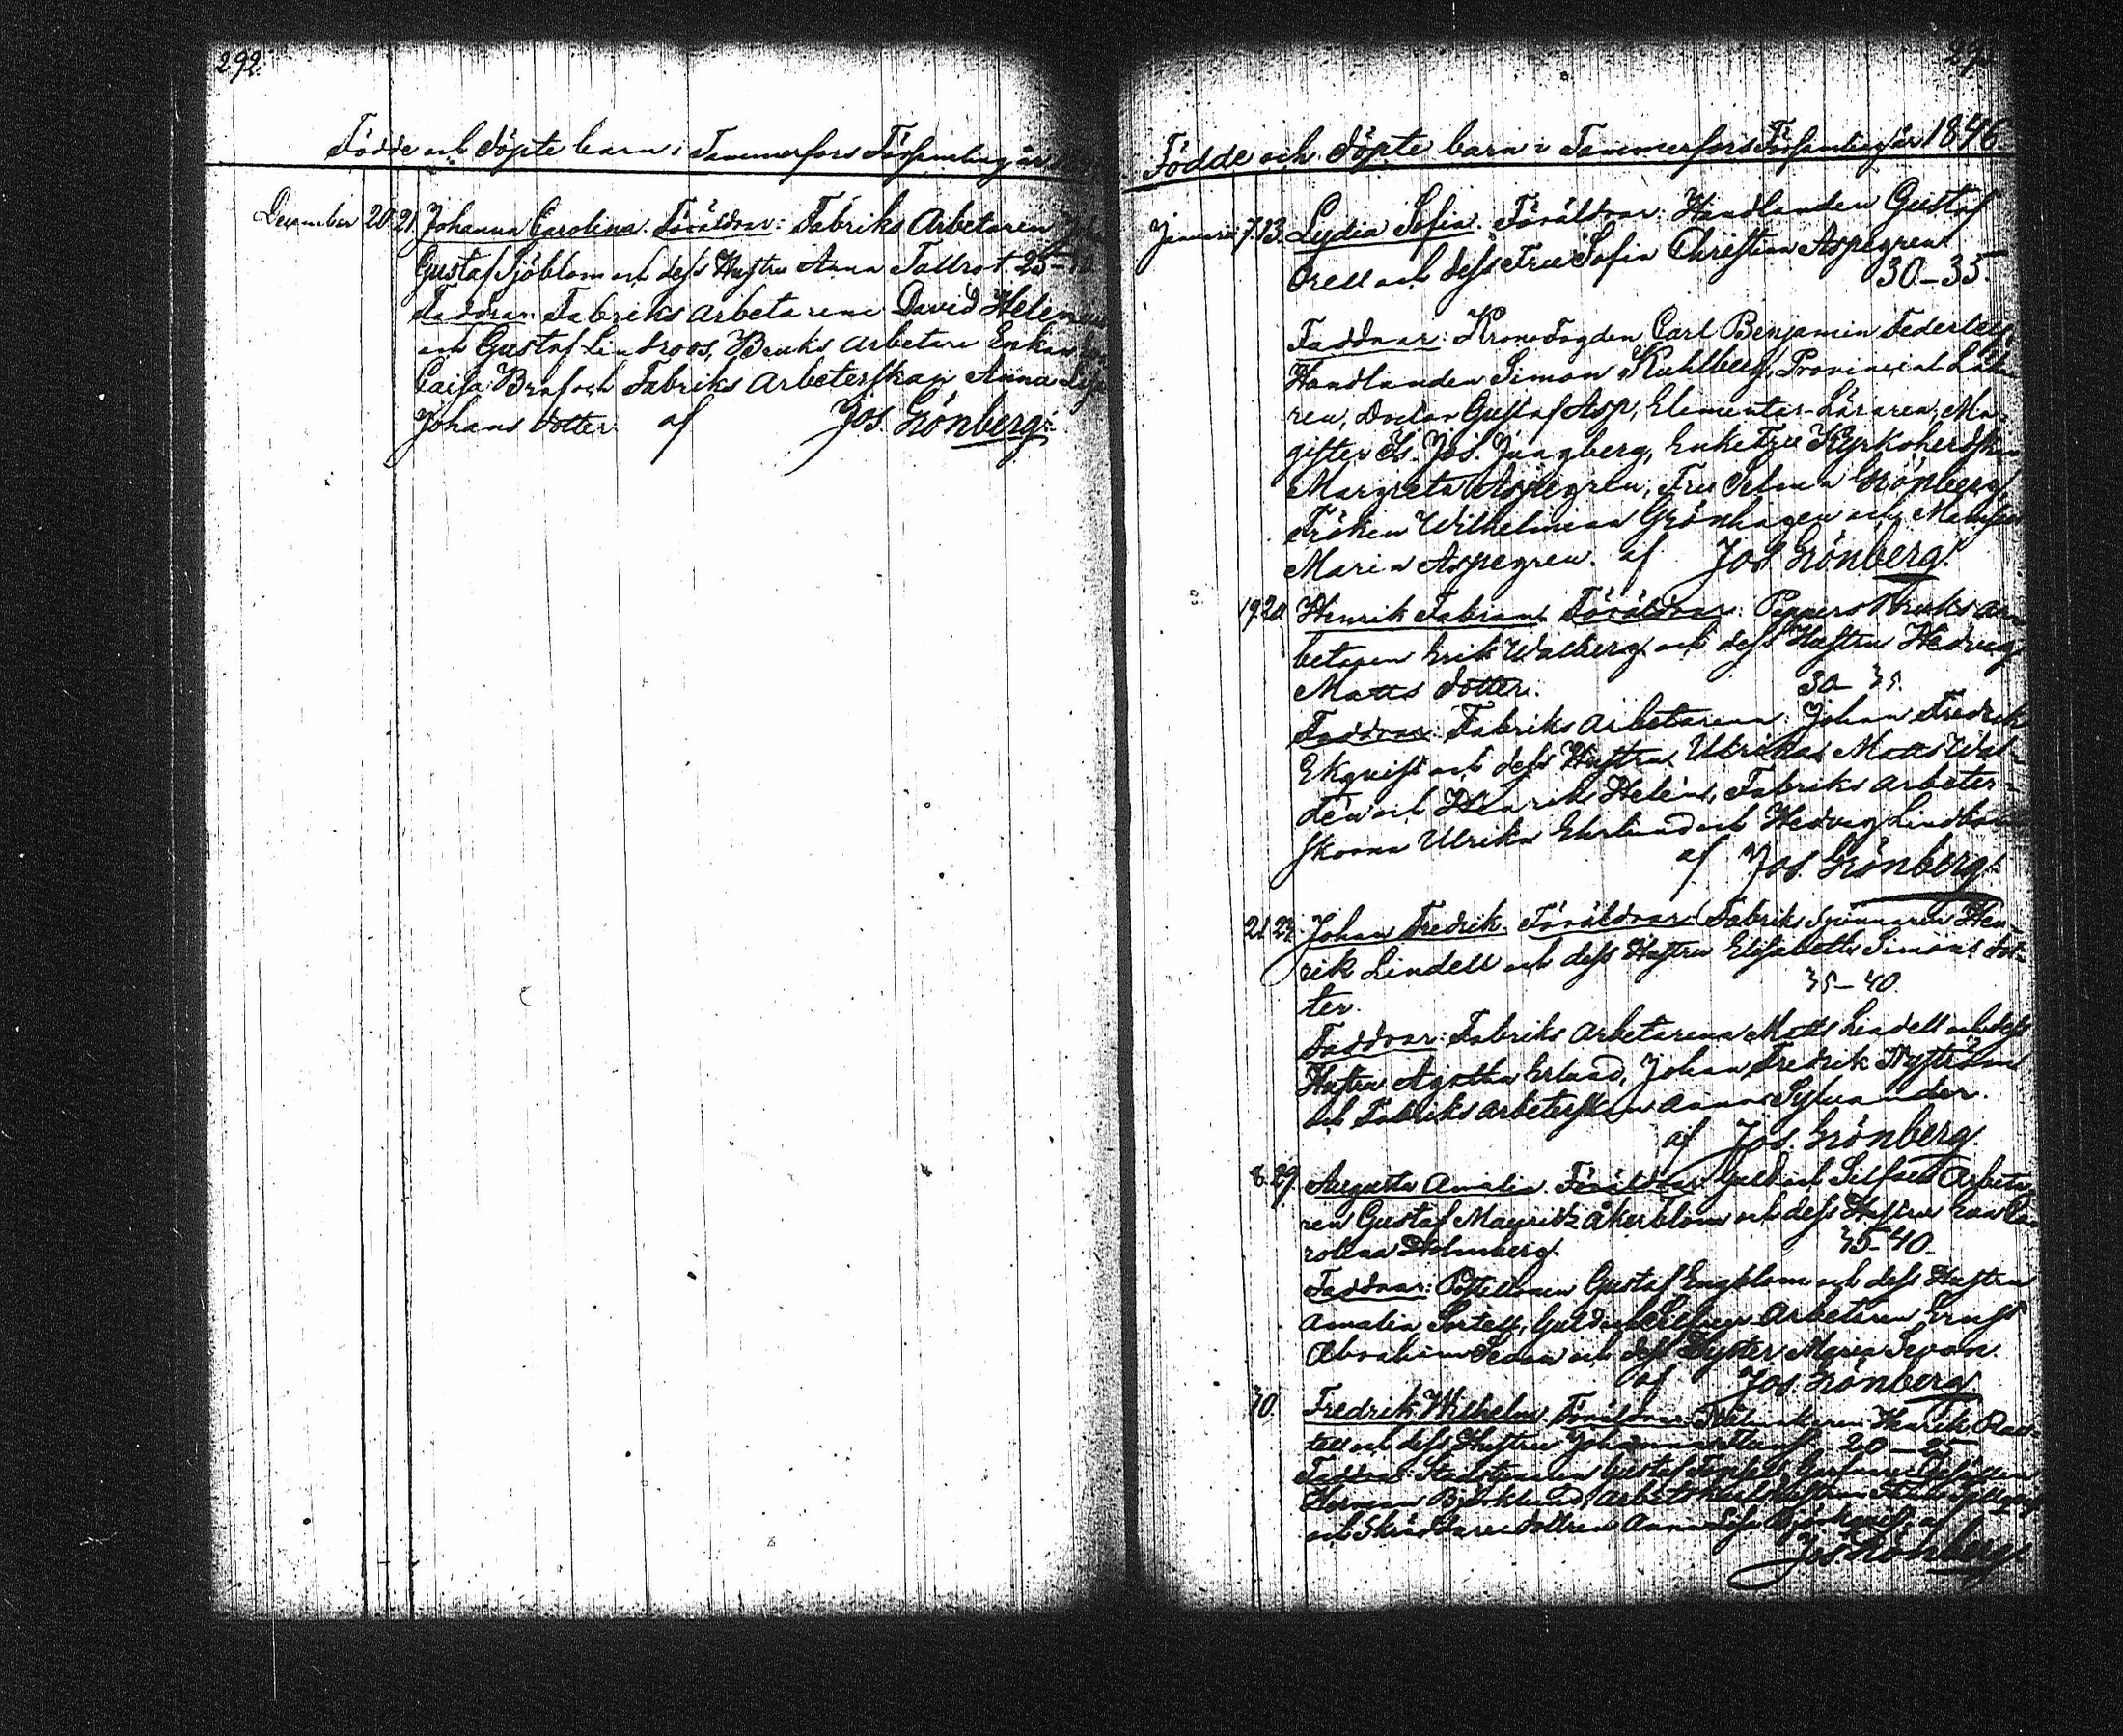 292.
Födde och döpte barn i Tammerfors Församling år
December 20. 21. Johanna Carolina. Föräldrar: Fabriks Arbetaren
Gustaf Sjöblom och dess Hustru Anna Tallrot. 25-30
Faddrar: Fabriks arbetarene David Helenius
och Gustaf Lindroos, Bruks arbetare Enkan
Caisa Braf och Fabriks Arbeterskan Anna Lisa
Johans dotter. af Jos. Grönberg.
Födde och döpte barn i Tammerfors Församling år 1846.
Januarii 7. 13. Lydia Sofia. Föräldrar: Handlanden Gustaf
Orell och dess Fru Sofia Christina Aspegren.
30-35.
Faddrar: Kronofogden Carl Benjamin Federley,
Handlanden Simon Kuhlberg, Provincial Läka-
ren, Doctor Gustaf Asp, Elementar-Läraren, Ma-
gister Is. Jos. Jungberg, Enkefru Kyrkoherdskan
Margreta Aspegren, Fru Selma Grönberg,
Fröken Wilhelmina Grönhagen och Mamsell
Maria Aspegren. af Jos Grönberg.
19. 20. Henrik Fabian. Föräldrar: Pappers Bruks ar-
betaren Erik Walberg och dess Hustru Hedvig
Matts dotter. 30-35.
Faddrar: Fabriks arbetarena: Johan Fredrik
Ekqvist och dess Hustru Ulrika, Matts Wal-
dén och Henrik Helén, Fabriks arbeter-
skorna Ulrika Ehrlund och Hedvig Lindbom
af Jos. Grönberg.
21. Johan Fredrik. Föräldrar: Fabriks Spinnaren Hen-
rik Lindell och dess Hustru Elisabeth Simons dot-
ter. 35-40.
Faddrar: Fabriks arbetarena Matts Lindell och dess
Hustru Agatha Erlund, Johan Fredrik Nyström
och Fabriks arbeterskan Anna Sylvander.
af Jos. Grönberg.
29. Augusta Amalia. Föräldrar: Guld och Silfver Arbeta-
ren Gustaf Mauritz Åkerblom och dess Hustru Eva Ca-
rolina Holmberg. 35-40.
Faddrar: Postillonen Gustaf Engblom och dess Hustru
Amalia, Guld och Silfver Arbetaren Ernst
Abraham Levon och dess Syster Maria Levon.
af Jos. Grönberg.
30. Fredrik Wilhelm. Föräldrar: Henrik
och dess Hustru Johanna 20-25
Faddrar: Gustaf
Herman Björklund,
och Skräddare dottren Anna Lisa Björkqvist, af
Jos. Grönberg.